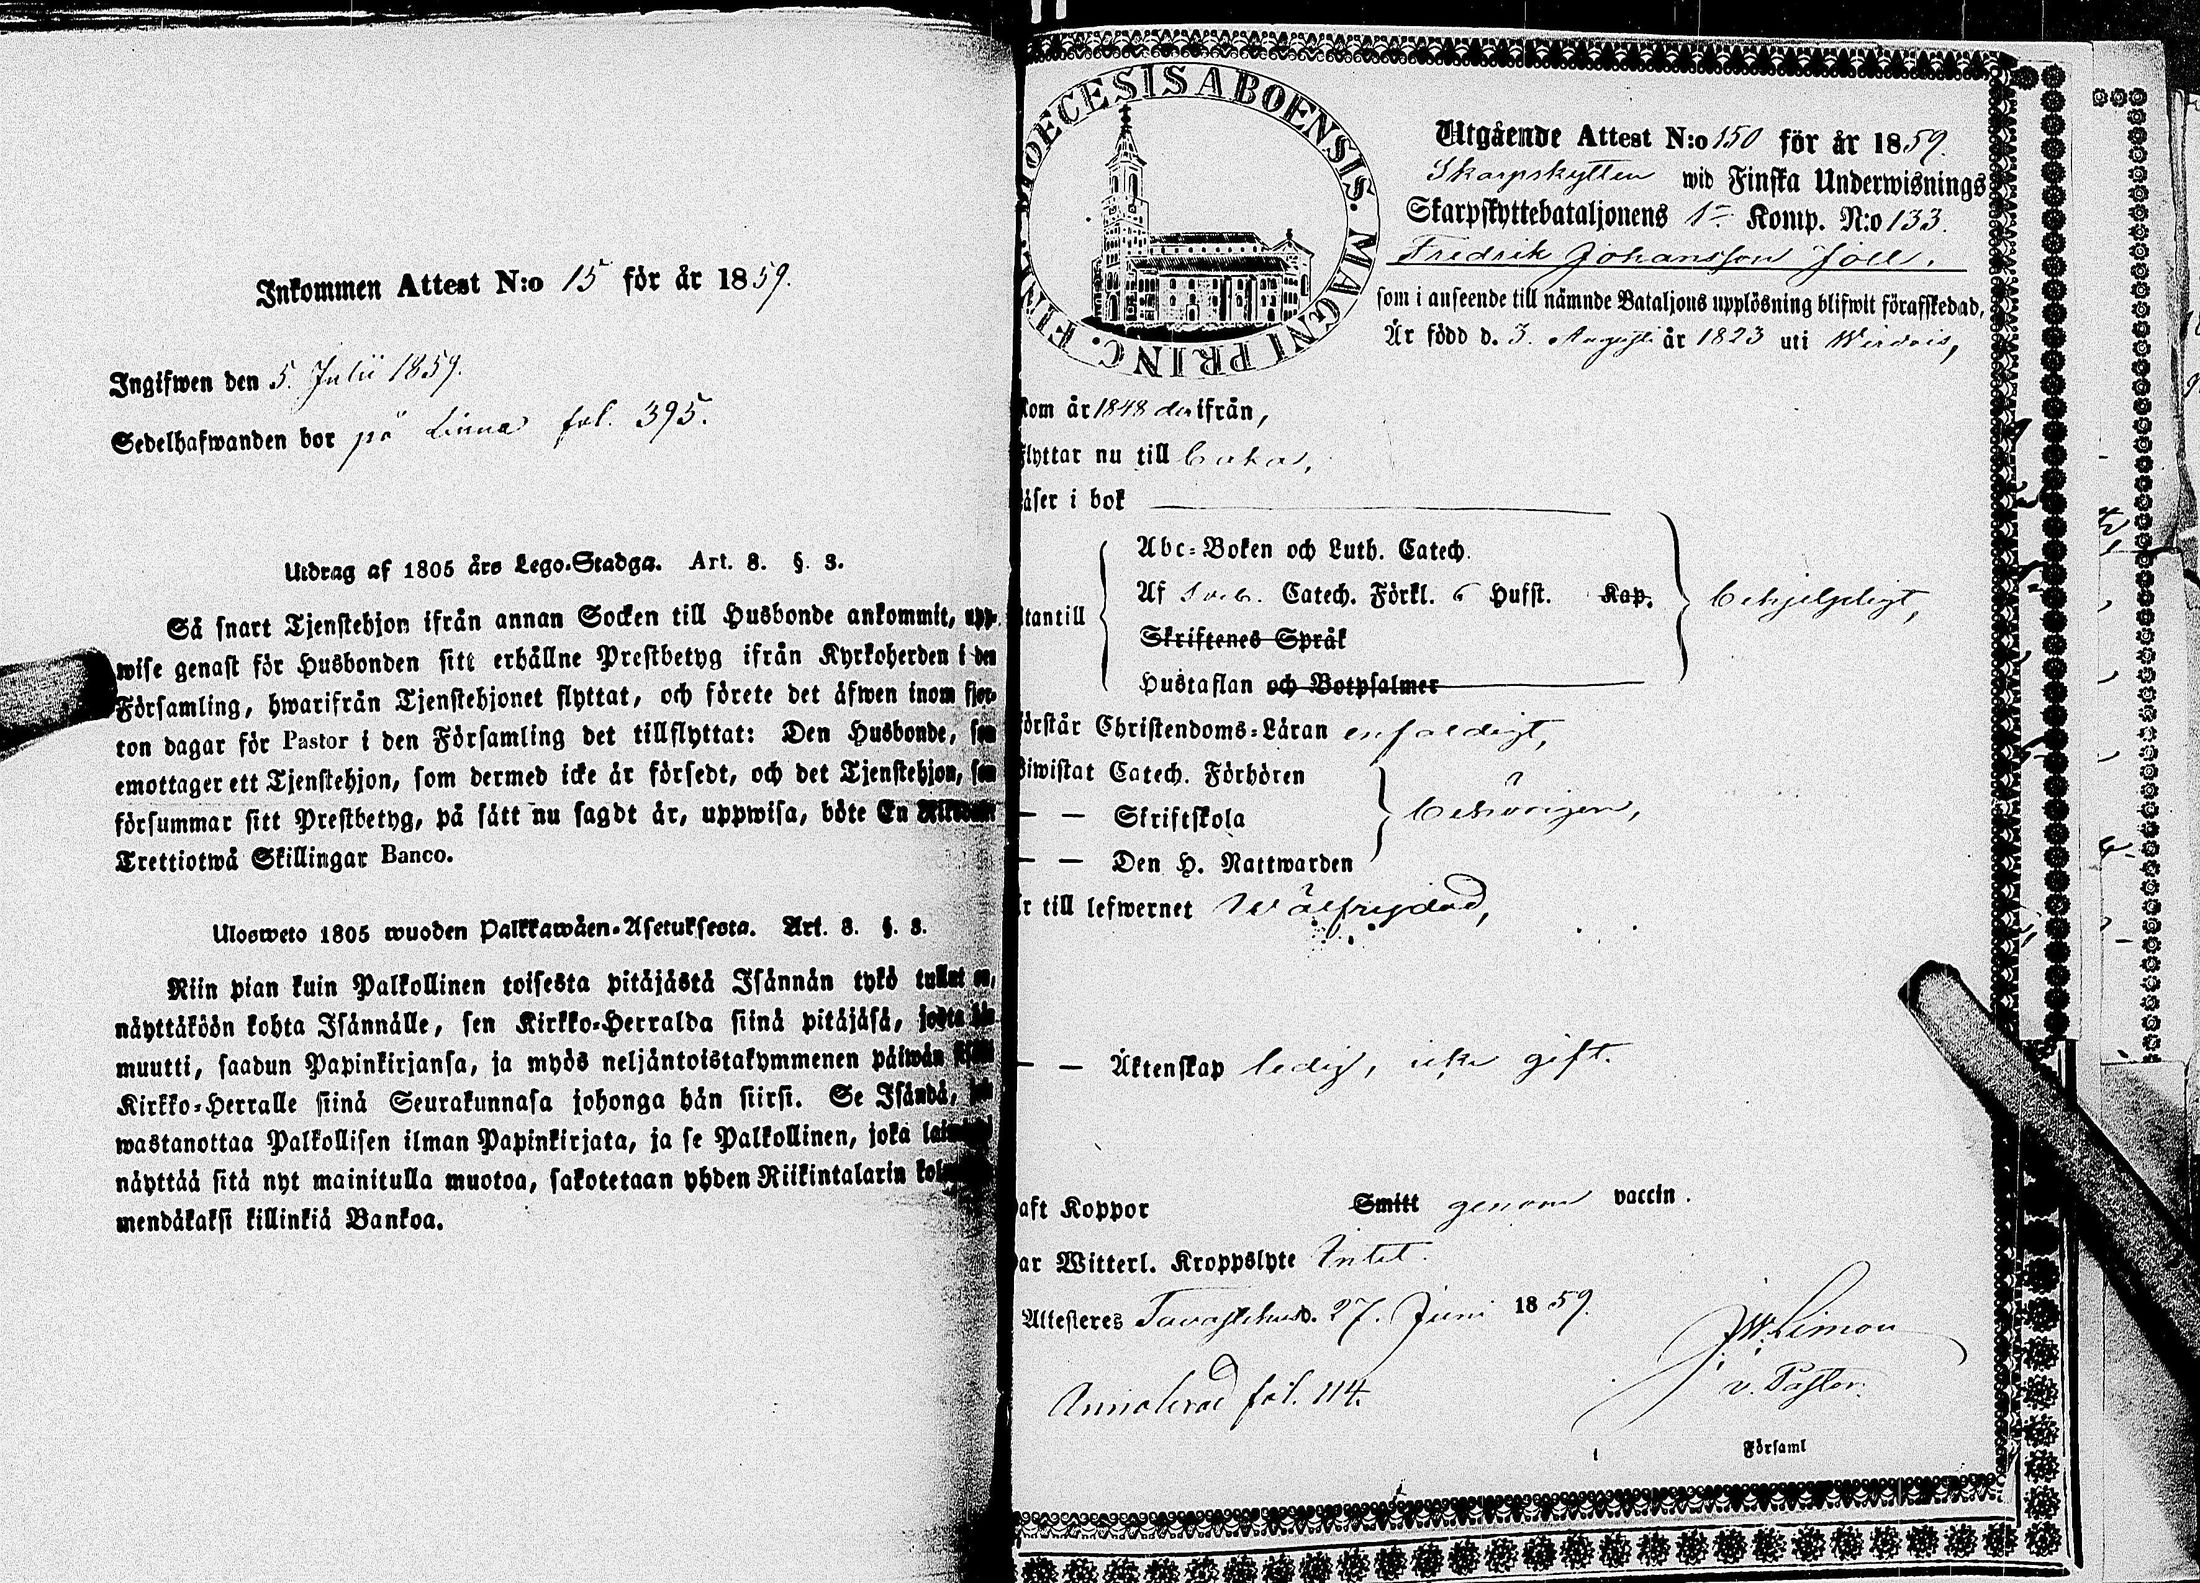 Inkommen Attest N:o 15 för år 1859.
Ingifwen den 5. Julii 1859.
Sedelhafwanden bor på Linna fol. 395.
Utdrag af 1805 års Lego-Stadga. Art. 8. §. 3.
Så snart Tjenstehjon ifrån annan Socken till Husbonde ankommit, upp-
wise genast för Husbonden sitt erhållne Prestbetyg ifrån Kyrkoherden i den
Församling, hwarifrån Tjenstehjonet flyttat, och förete det äfwen inom fjor-
ton dagar för Pastor i den Församling det tillflyttat: Den Husbonde, som
emottager ett Tjenstehjon, som dermed icke är försedt, och det Tjenstehjon, som
försummar sitt Prestbetyg, på sätt nu sagdt är, uppwisa, böte En
Trettiotwå Skillingar Banco.
Ulosweto 1805 wuoden Palkkawäen-Asetuksesta. Art. 8. §. 3.
Niin pian kuin Palkollinen toisesta pitäjästä Isännän tykö tullut on,
näyttäköön kohta Isännälle, sen Kirkko-Herralda siinä pitäjäsä, josta hän
muutti, saadun Papinkirjansa, ja myös neljäntoistakymmenen päiwän
Kirkko-Herralle siinä Seurakunnasa johonga hän siirsi. Se Isändä,
wastanottaa Palkollisen ilman Papinkirjata, ja se Palkollinen, joka
näyttää sitä nyt mainitulla muotoa, sakotetaan yhden Riikintalarin
mendäkaksi killinkiä Bankoa.
DIOECESIS ABOENSIS. MAGNI PRINC. FINL.
Utgående Attest N:o 150 för år 1859.
Skarpskytten wid Finska Underwisnings
Skarpskyttebataljonens 1:a Komp. N:o 133.
Fredrik Johansson
som i anseende till nämnde Bataljons upplösning blifwit förafskedad,
Är född d. 3. Augusti år 1823 uti Wirdois,
kom år 1848 derifrån,
flyttar nu till
läser i bok
Abc-Boken och Luth. Catech.
Af Sveb. Catech. Förkl. 6 Hufst. Kap.
utantill
Skriftenes Språk
behjelpeligt,
Hustaflan och Botpsalmer
förstår Christendoms-Läran enfaldigt,
Biwistat Catech. Förhören
— — Skriftskola
behörigen,
— — Den H. Nattwarden
Är till lefwernet wälfrejdad,
— — Äktenskap ledig, icke gift.
Haft Koppor Smitt genom vaccin.
Har Witterl. Kroppslyte Intet.
Attesteres Tavastehus d. 27. Juni 1859.
J.W. Limon
v. Pastor.
fol. 114.
Församl